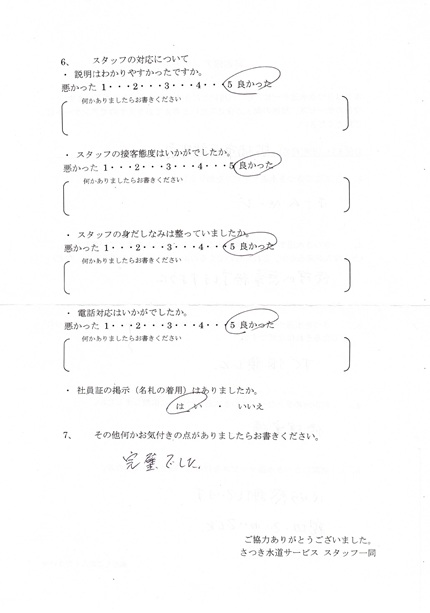 6、 スタッフの対応について
・ 説明はわかりやすかったですか。
悪かった 1・・・2・・・3・・・4・・・5 良かった
何かありましたらお書きください
・ スタッフの接客態度はいかがでしたか。
悪かった 1・・・2・・・3・・・4・・・5 良かった
何かありましたらお書きください
・ スタッフの身だしなみは整っていましたか。
悪かった 1・・・2・・・3・・・4・・・5 良かった
何かありましたらお書きください
・ 電話対応はいかがでしたか。
悪かった 1・・・2・・・3・・・4・・・5 良かった
何かありましたらお書きください
・ 社員証の掲示（名札の着用）はありましたか。
はい ・ いいえ
7、 その他何かお気付きの点がありましたらお書きください。
完璧でした。
ご協力ありがとうございました。
さつき水道サービス スタッフ一同